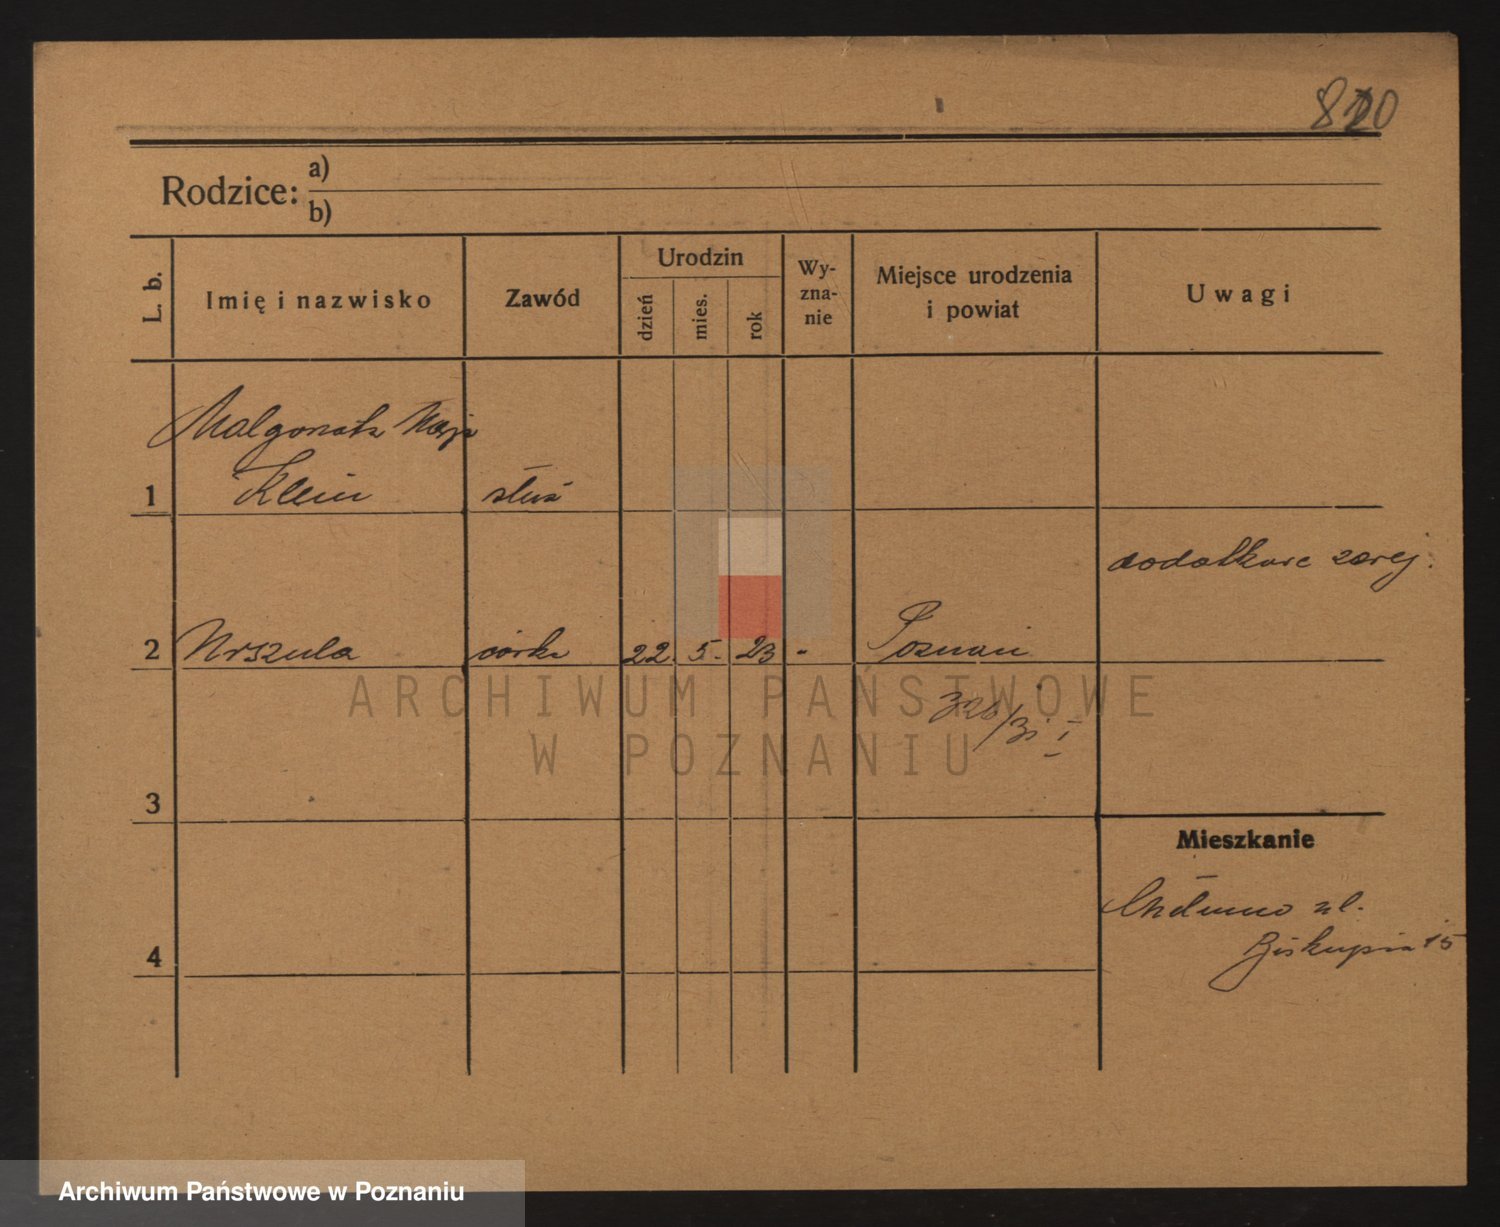 810
Rodzice: a)
b)
L. b.
Imię i nazwisko
Zawód
Urodzin
dzień
mies.
rok
Wy-
zna-
nie
Miejsce urodzenia
i powiat
Uwagi
Małgorzata Marja
1 Klein służ
dodatkowe zarej.
2 Urszula córka 22. 5. 23 - Poznań
328/31 I
3
Mieszkanie
Chełmno ul.
Biskupia 15
4
ARCHIWUM PAŃSTWOWE
W POZNANIU
Archiwum Państwowe w Poznaniu